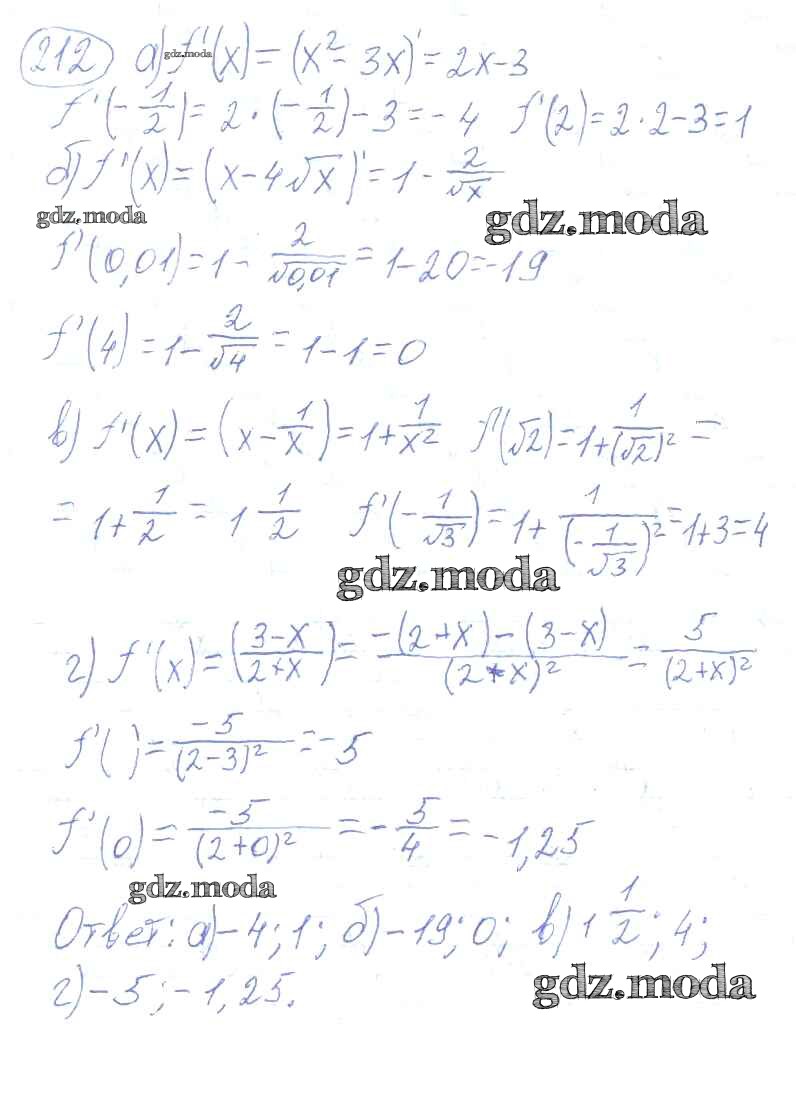 212 а) f'(x) = (x² - 3x)' = 2x-3
gdz.moda
f'(-1/2) = 2·(-1/2)-3 = -4 f'(2) = 2·2-3 = 1
б) f'(x) = (x-4√x)' = 1 - 2/√x
gdz.moda gdz.moda
f'(0,01) = 1 - 2/√0,01 = 1-20 = -19
f'(4) = 1 - 2/√4 = 1-1 = 0
в) f'(x) = (x - 1/x)' = 1 + 1/x² f'(√2) = 1 + 1/(√2)² =
= 1 + 1/2 = 1 1/2 f'(-1/√3) = 1 + 1/(-1/√3)² = 1+3 = 4
gdz.moda
г) f'(x) = ((3-x)/(2+x))' = (-(2+x)-(3-x))/(2+x)² = 5/(2+x)²
f'( ) = -5/(2-3)² = -5
f'(0) = -5/(2+0)² = -5/4 = -1,25
gdz.moda
Ответ: а) -4; 1; б) -19; 0; в) 1 1/2; 4;
г) -5; -1,25.
gdz.moda